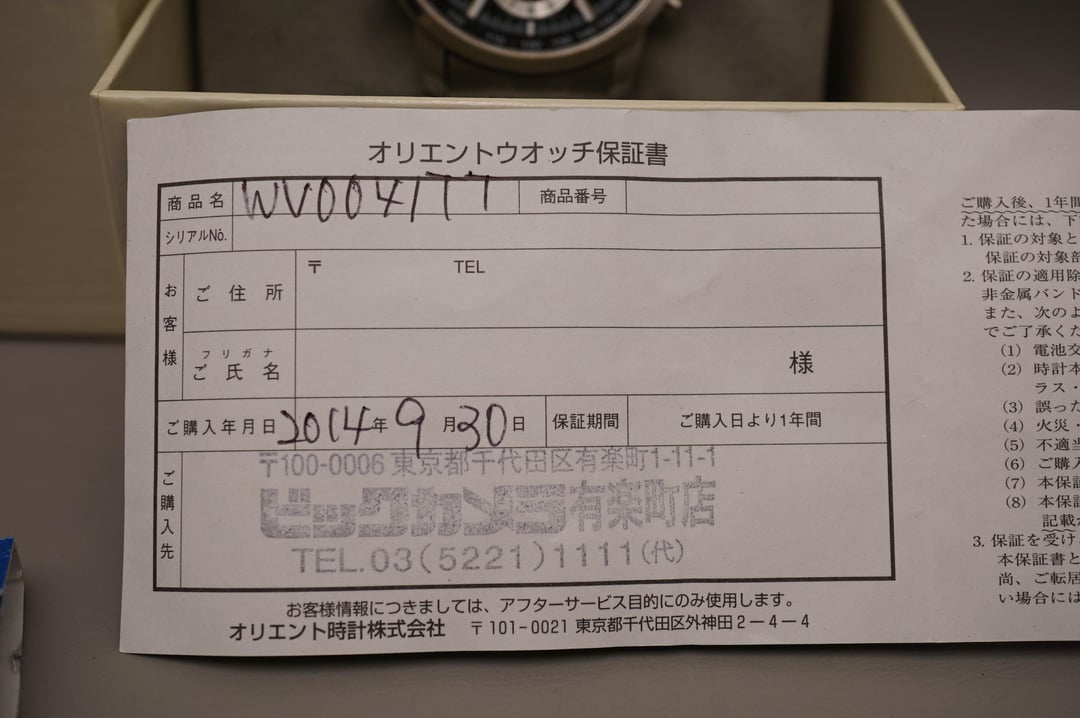 オリエントウオッチ保証書
商品名 WV0041TT 商品番号
シリアルNo.
お客様
ご住所 〒 TEL
フリガナ
ご氏名 様
ご購入年月日 2014年 9月30日 保証期間 ご購入日より1年間
ご購入先
〒100-0006 東京都千代田区有楽町1-11-1
ビックカメラ有楽町店
TEL.03(5221)1111(代)
お客様情報につきましては、アフターサービス目的にのみ使用します。
オリエント時計株式会社 〒101-0021 東京都千代田区外神田2-4-4
ご購入後、1年間
た場合には、下
1. 保証の対象と
保証の対象部
2. 保証の適用除
非金属バンド
また、次のよ
でご了承くた
(1) 電池交
(2) 時計本
ラス・
(3) 誤った
(4) 火災・
(5) 不適当
(6) ご購入
(7) 本保証
(8) 本保証
記載
3. 保証を受け
本保証書と
尚、ご転居
い場合には